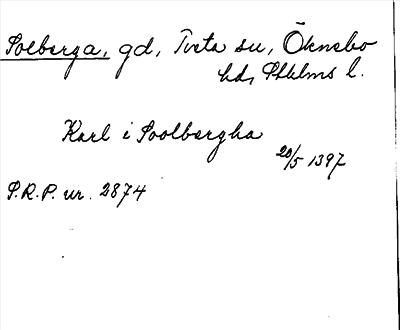 Solberga, gd, Tveta sn, Öknebo
hd, Sthlms l.
Karl i Soolbergha
20/5 1397
S.R.P. nr. 2874